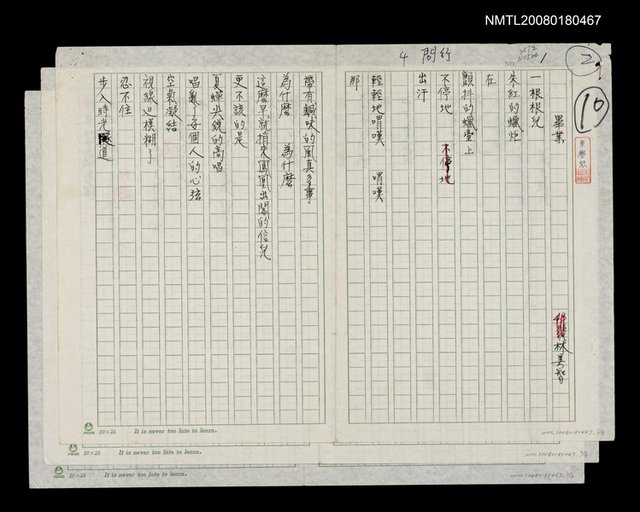 NMTL20080180467
4 問竹
NO. 1
2
10
畢業
林美智
一根根兒
朱紅的蠟炬
在
顫抖的蠟臺上
不停地 不停地
出汗
輕輕地喟嘆 喟嘆
那
帶有鹹味的風真多事
為什麼 為什麼
這麼早就捎來鳳凰出閣的信兒
更不該的是
夏蟬尖銳的高唱
唱亂了每個人的心弦
空氣凝結
視線也模糊了
忍不住
步入時光隧道
20×25 It is never too late to learn.
20×25 It is never too late to learn.
20×25 It is never too late to learn.